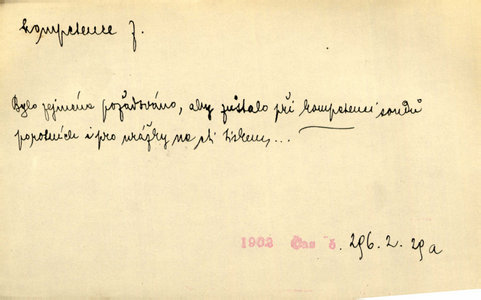 kompetence f.
Bylo zejména požadováno, aby zůstalo při kompetenci soudů
porotních i pro urážky na cti tiskem,...
1903 Čas č. 296.2. 29a